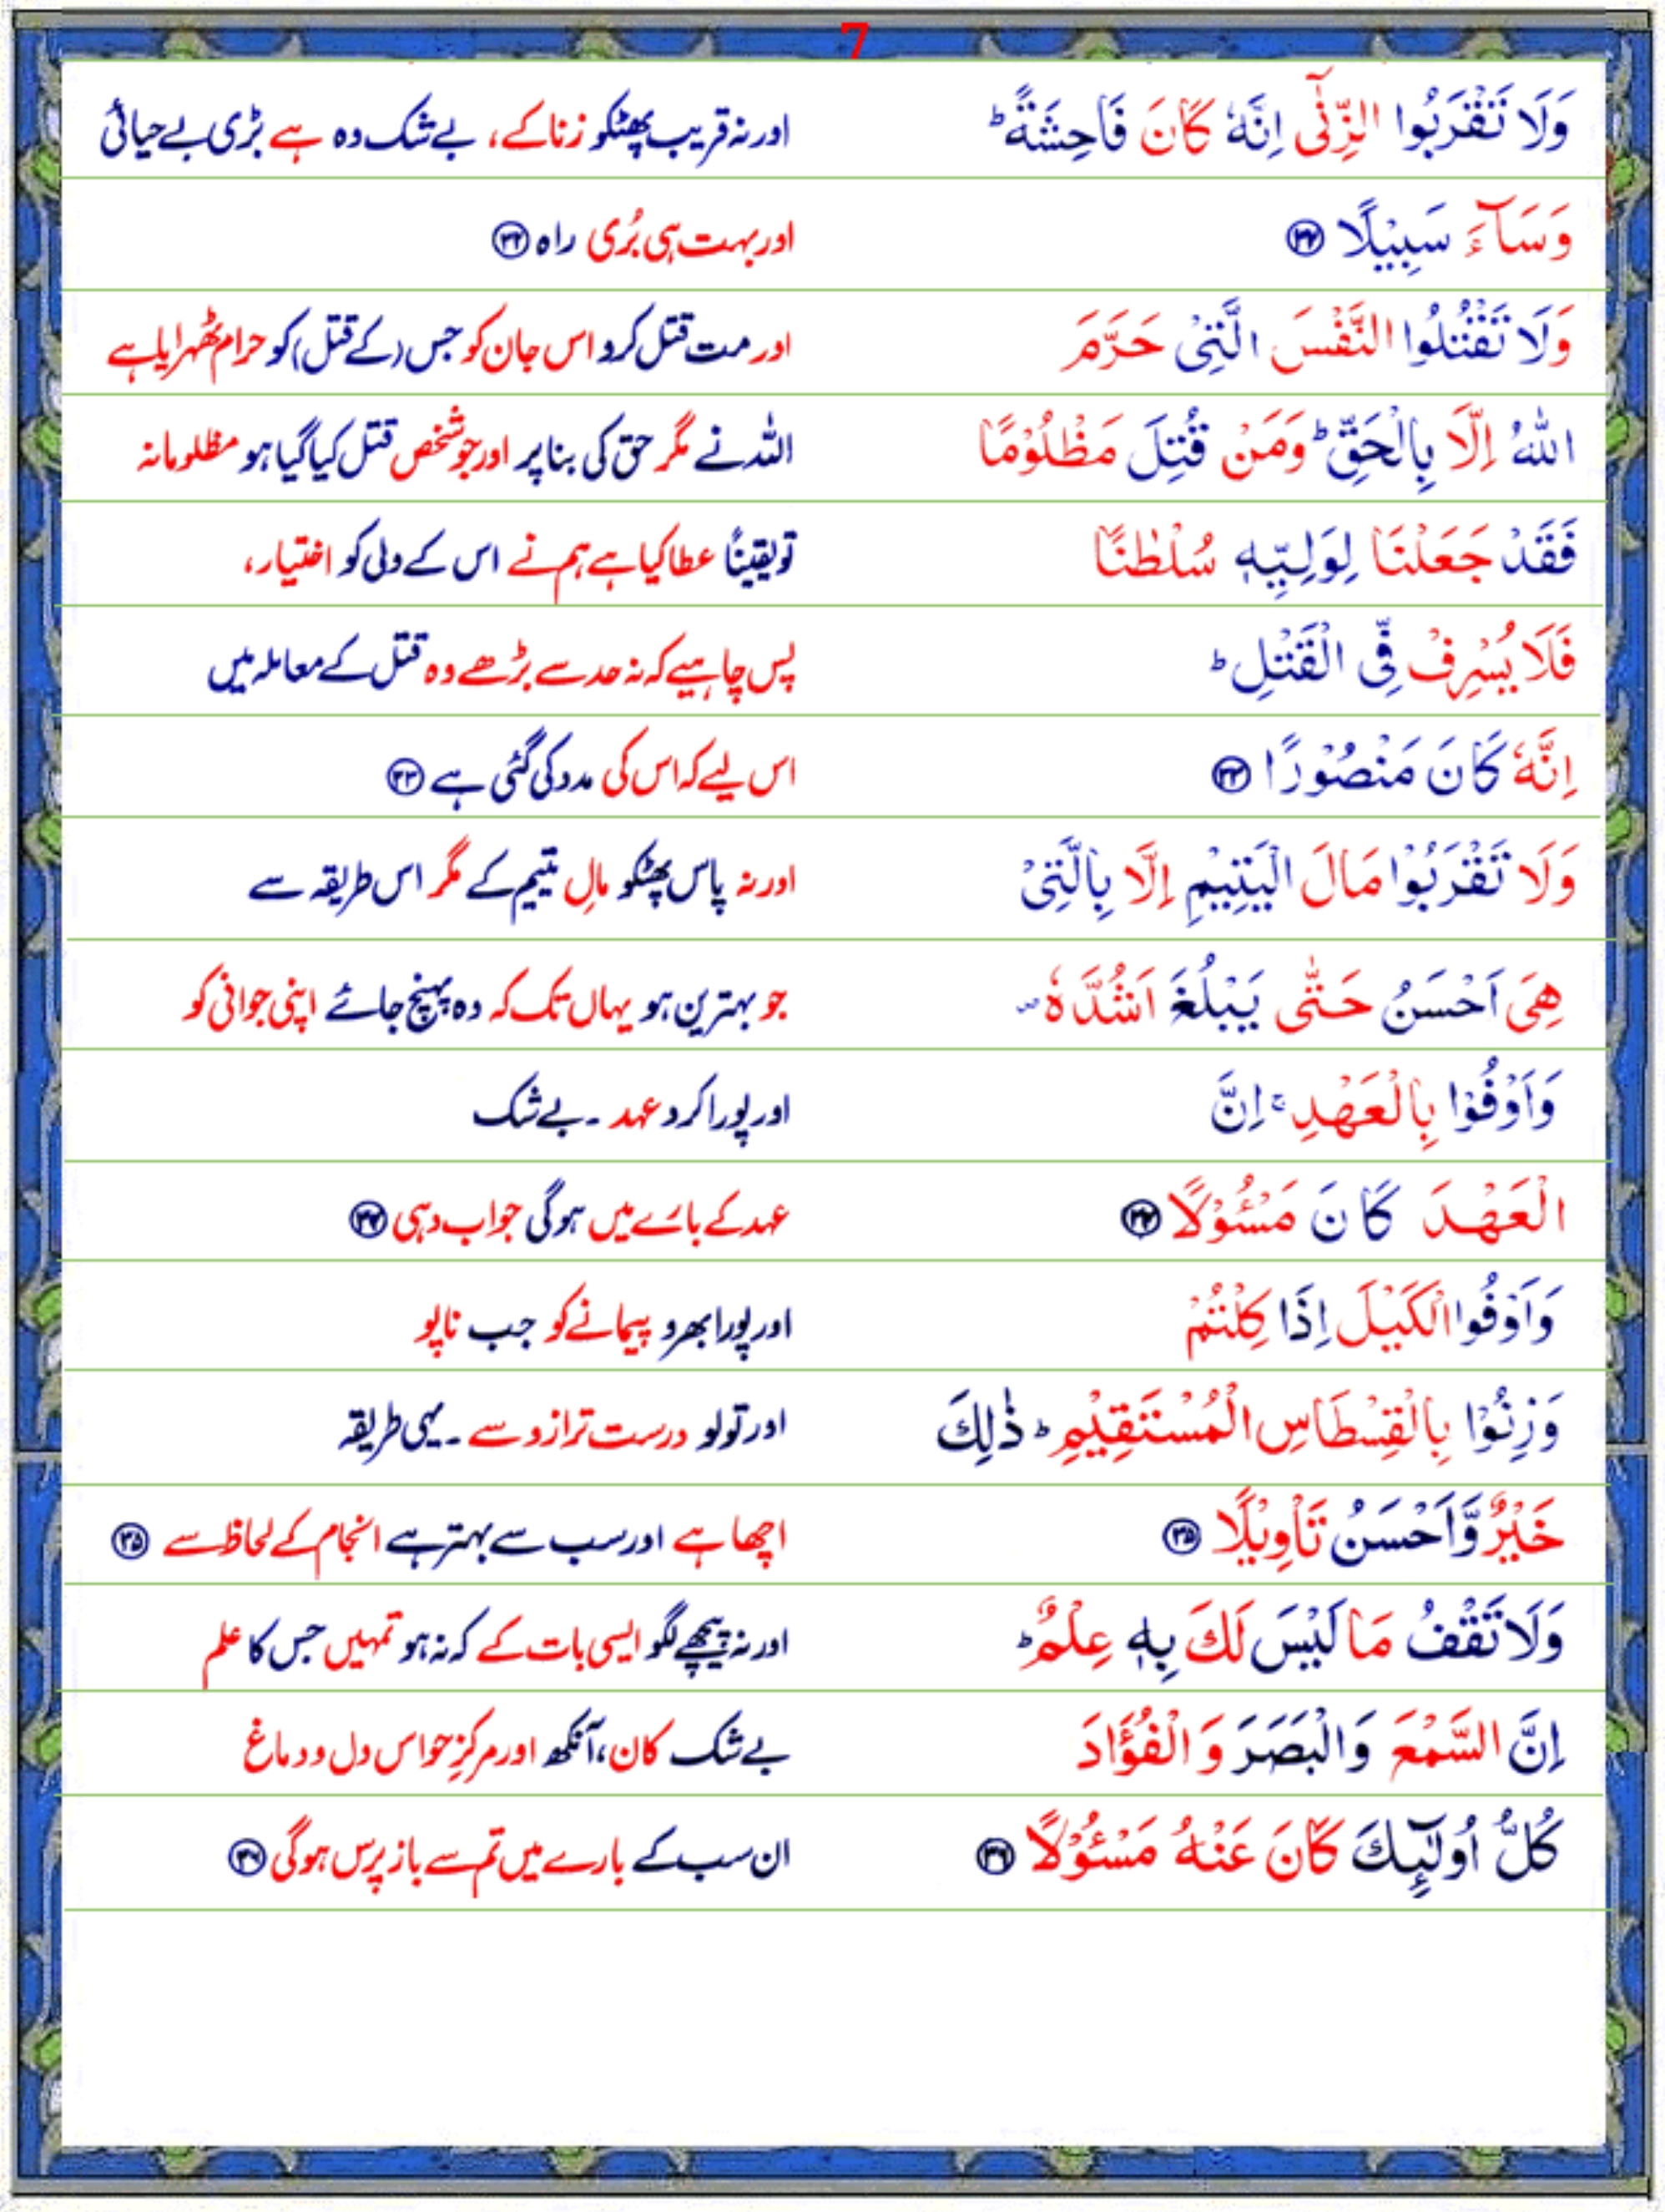 7
وَلَا تَقْرَبُوا الزِّنٰٓى اِنَّهٗ كَانَ فَاحِشَةً ؕ اور نہ قریب پھٹکو زنا کے، بے شک وہ ہے بڑی بے حیائی
وَسَآءَ سَبِيْلًا ﴿۳۲﴾ اور بہت ہی بُری راہ ﴿۳۲﴾
وَلَا تَقْتُلُوا النَّفْسَ الَّتِىْ حَرَّمَ اور مت قتل کرو اس جان کو جس (کے قتل) کو حرام ٹھہرایا ہے
اللّٰهُ اِلَّا بِالْحَقِّ ؕ وَمَنْ قُتِلَ مَظْلُوْمًا اللہ نے مگر حق کی بنا پر اور جو شخص قتل کیا گیا ہو مظلومانہ
فَقَدْ جَعَلْنَا لِوَلِيِّهٖ سُلْطٰنًا تو یقیناً عطا کیا ہے ہم نے اس کے ولی کو اختیار،
فَلَا يُسْرِفْ فِّى الْقَتْلِ ؕ پس چاہیے کہ نہ حد سے بڑھے وہ قتل کے معاملہ میں
اِنَّهٗ كَانَ مَنْصُوْرًا ﴿۳۳﴾ اس لیے کہ اس کی مدد کی گئی ہے ﴿۳۳﴾
وَلَا تَقْرَبُوْا مَالَ الْيَتِيْمِ اِلَّا بِالَّتِىْ اور نہ پاس پھٹکو مالِ یتیم کے مگر اس طریقہ سے
هِىَ اَحْسَنُ حَتّٰى يَبْلُغَ اَشُدَّهٗ ۖ جو بہترین ہو یہاں تک کہ وہ پہنچ جائے اپنی جوانی کو
وَاَوْفُوْا بِالْعَهْدِ ۚ اِنَّ اور پورا کرو عہد ۔ بے شک
الْعَهْدَ كَانَ مَسْئُوْلًا ﴿۳۴﴾ عہد کے بارے میں ہوگی جواب دہی ﴿۳۴﴾
وَاَوْفُوا الْكَيْلَ اِذَا كِلْتُمْ اور پورا بھرو پیمانے کو جب ناپو
وَزِنُوْا بِالْقِسْطَاسِ الْمُسْتَقِيْمِ ؕ ذٰلِكَ اور تولو درست ترازو سے ۔ یہی طریقہ
خَيْرٌ وَّاَحْسَنُ تَاْوِيْلًا ﴿۳۵﴾ اچھا ہے اور سب سے بہتر ہے انجام کے لحاظ سے ﴿۳۵﴾
وَلَا تَقْفُ مَا لَيْسَ لَكَ بِهٖ عِلْمٌ ؕ اور نہ پیچھے لگو ایسی بات کے کہ نہ ہو تمہیں جس کا علم
اِنَّ السَّمْعَ وَالْبَصَرَ وَالْفُؤَادَ بے شک کان، آنکھ اور مرکزِ حواس دل و دماغ
كُلُّ اُولٰٓئِكَ كَانَ عَنْهُ مَسْئُوْلًا ﴿۳۶﴾ ان سب کے بارے میں تم سے باز پرس ہوگی ﴿۳۶﴾